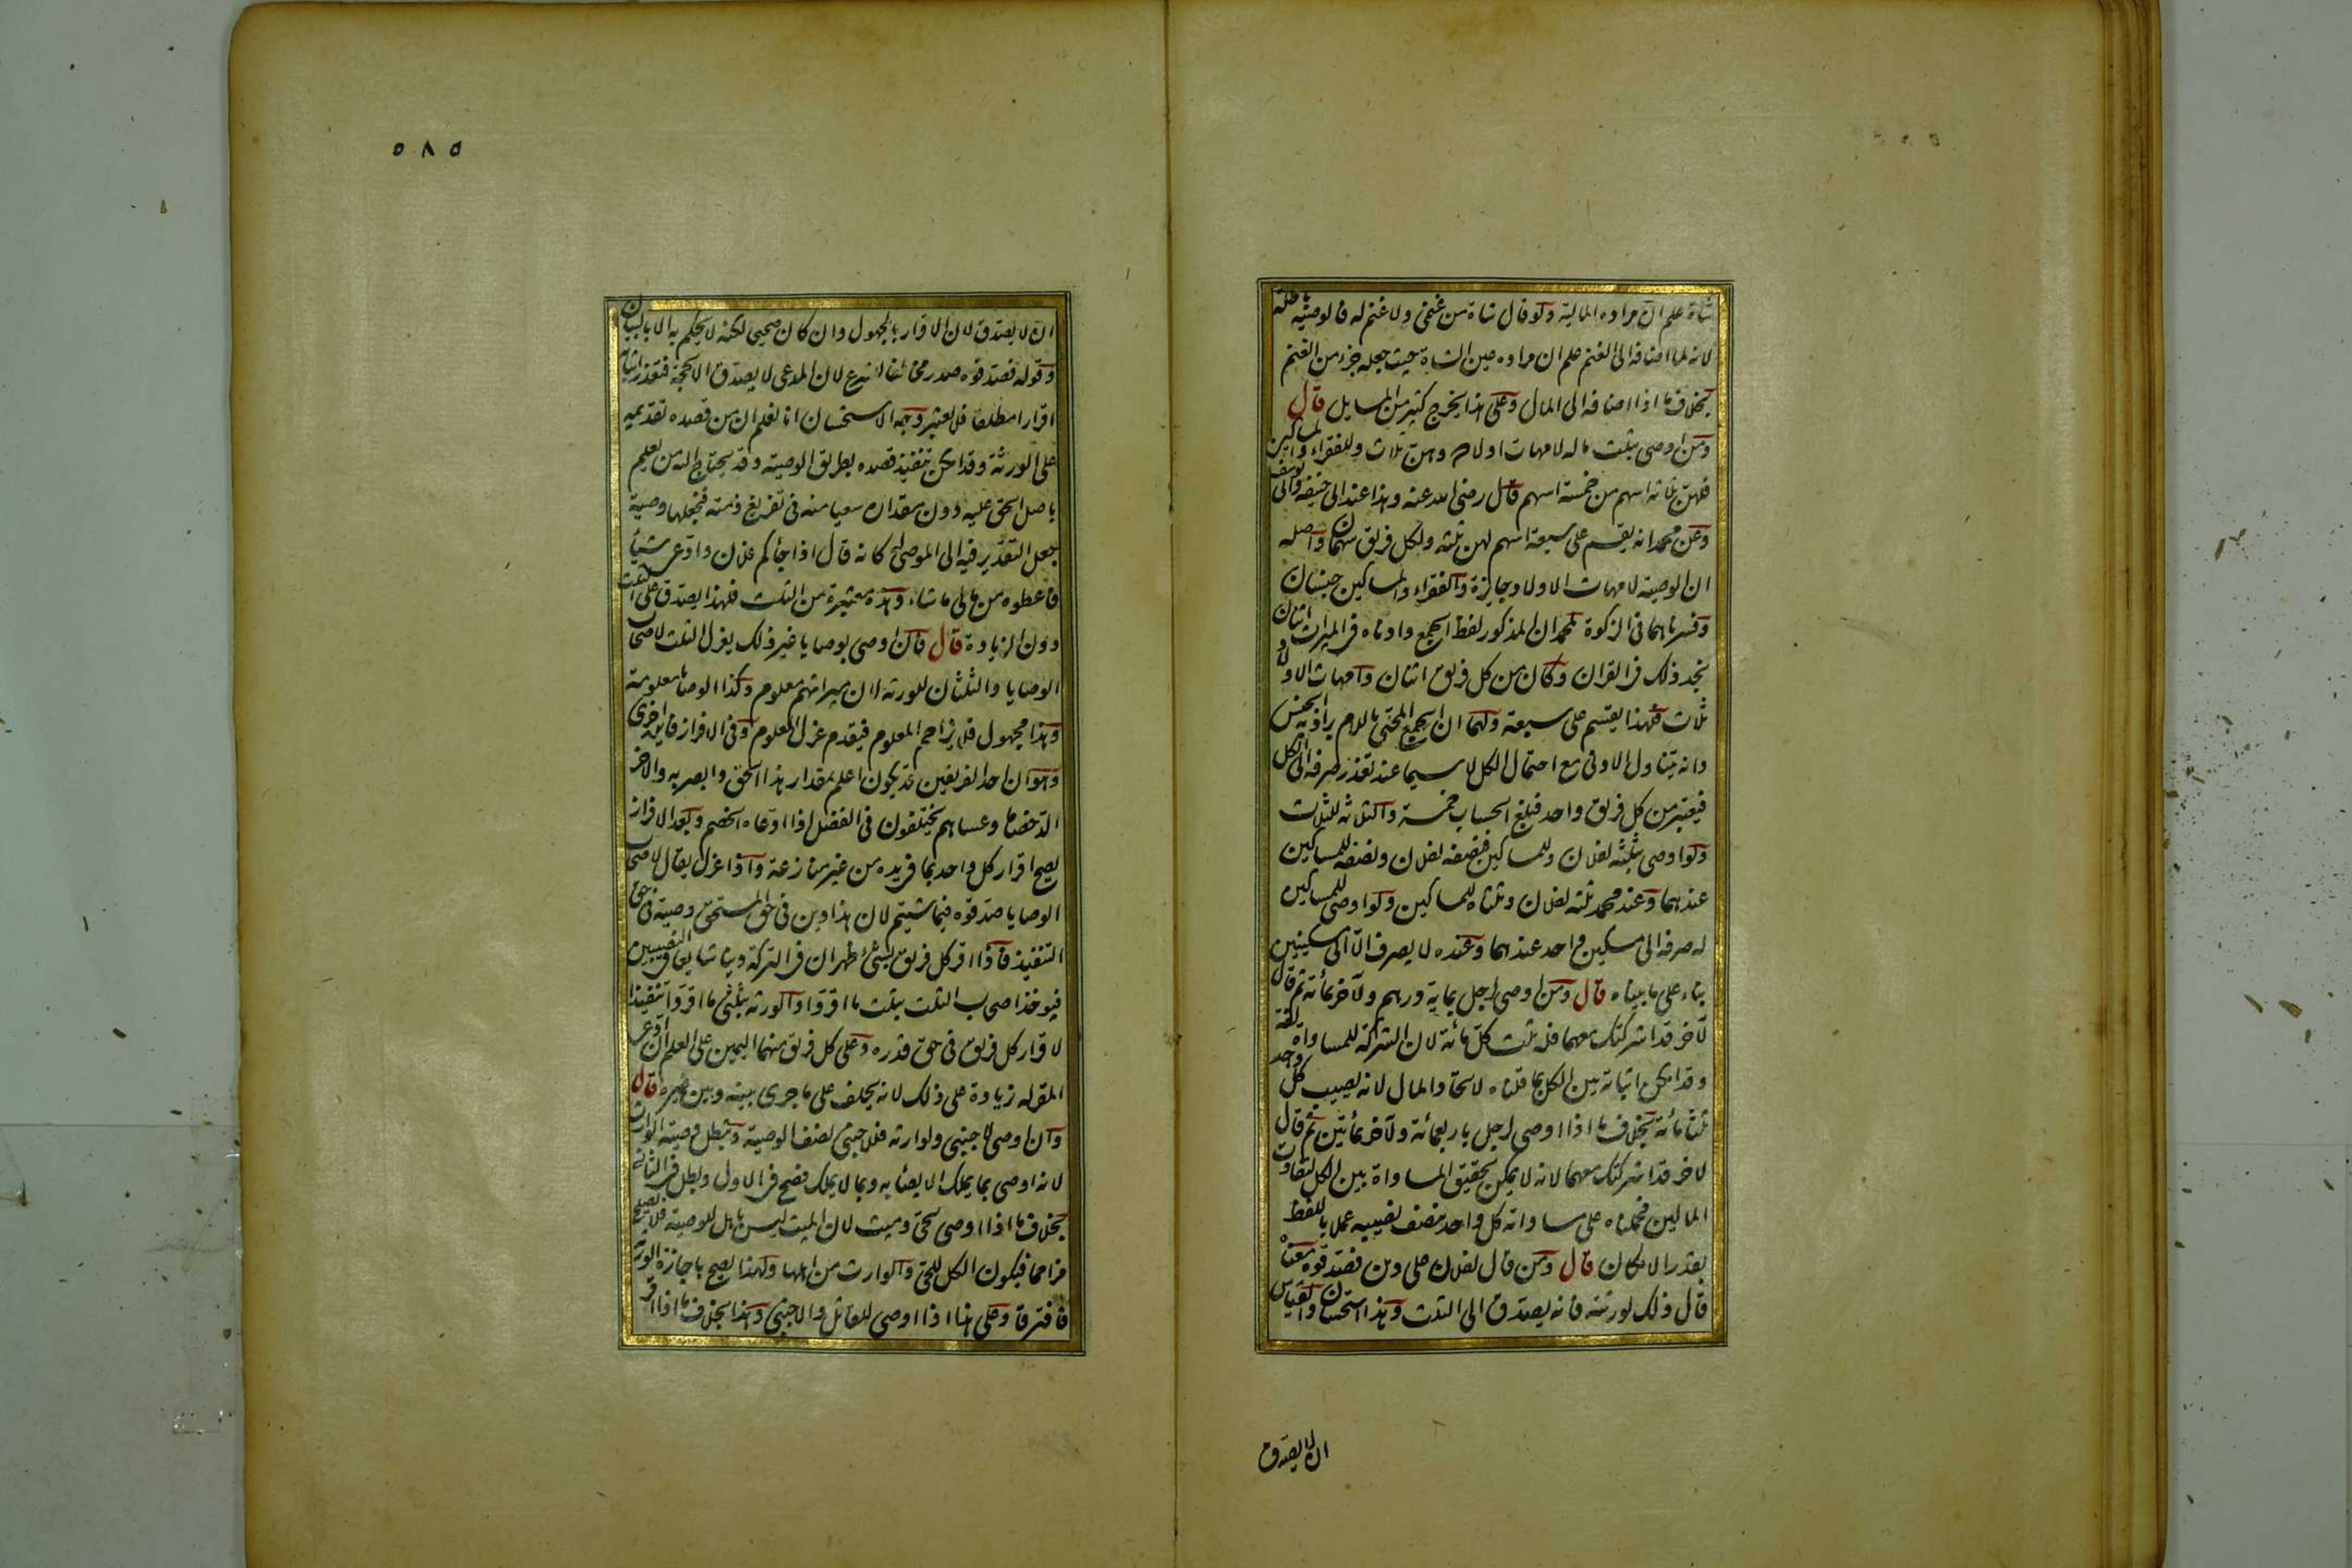 شاة علم ان مراده المالية ولو قال شاة من غنمى ولا غنم له فالوصية باطلة
لانه لما اضافه الى الغنم علم ان مراده عين الشاة حيث جعله جزء من الغنم
بخلاف ما اذا اضافه الى المال وعلى هذا يخرج كثير من المسايل قال
ومن اوصى بثلث ماله لامهات اولاده وهن ثلاث وللفقراء والمساكين
فلهن ثلاثة اسهم من خمسة اسهم قال رضى الله عنه وهذا عند ابى حنيفة وابى يوسف
وعن محمد انه يقسم على سبعة اسهم لهن ثلثة ولكل فريق سهمان واصله
ان الوصية لامهات الاولاد جايزة والفقراء والمساكين جنسان
وفسرناهما فى الزكوة لمحمد ان المذكور لفظ الجمع وادناه فى الميراث اثنان
نجد ذلك فى القران وكان من كل فريق اثنان وامهات الاولاد
ثلاث فلهذا يقسم على سبعة ولهما ان الجمع المحلى باللام يراد به الجنس
وانه يتناول الادنى مع احتمال الكل لا سيما عند تعذر صرفه الى الكل
فيعتبر من كل فريق واحد فبلغ الحساب خمسة والثلاثة للثلاث
ولو اوصى بثلثه لفلان وللمساكين فنصفه لفلان ونصفه للمساكين
عندهما وعند محمد ثلثه لفلان وثلثاه للمساكين ولو اوصى للمساكين
له صرفه الى مسكين واحد عندهما وعنده لا يصرف الا الى مسكينين
بناء على ما بيناه قال ومن اوصى لرجل بماية درهم ولآخر بمائة ثم قال
لآخر قد اشركتك معهما فله ثلث كل مائة لان الشركة للمساواة لغة
وقد امكن اثباته بين الكل بما قلناه لاتحاد المال لانه يصيب كل واحد
ثلثا مائة بخلاف ما اذا اوصى لرجل باربعمائة ولآخر بمأتين ثم قال
لاخر قد اشركتك معهما لانه لا يمكن تحقيق المساواة بين الكل لتفاوت
المالين فحملناه على مساواته كل واحد بنصف نصيبه عملا باللفظ
بقدر الامكان قال ومن قال لفلان على دين فصدقوه معناه
قال ذلك لورثته فانه يصدق الى الثلث وهذا استحسان والقياس
ان لا يصدق
٥٨٥
ان لا يصدق لان الاقرار بالمجهول وان كان صحيحا لكنه لا يحكم به الا بالبيان
وقوله فصدقوه صدر مخالفا للشرع لان المدعى لا يصدق الا بحجة فتعذر اثباته
اقرارا مطلقا فلا يعتبر وجه الاستحسان انا نعلم ان من قصده تقديمه
على الورثة وقد امكن تنفيذ قصده بطريق الوصية وقد يحتاج اليه من يعلم
باصل الحق عليه دون مقداره سعيا منه فى تفريغ ذمته فيجعلها وصية
جعل التقدير فيها الى الموصى له كانه قال اذا جاءكم فلان وادعى شيئا
فاعطوه من مالى ما شاء وهذه معتبرة من الثلث فلهذا يصدق على الثلث
دون الزيادة قال فان اوصى بوصايا غير ذلك يعزل الثلث لاصحاب
الوصايا والثلثان للورثة لان ميراثهم معلوم وكذا الوصايا معلومة
وهذا مجهول فلا يزاحم المعلوم فيقدم عزل المعلوم وفى الافراز فايدة اخرى
وهو ان احد الفريقين قد يكون اعلم بمقدار هذا الحق وابصر به والآخر
الد خصاما وعساهم يختلفون فى الفضل اذا ادعاه الخصم وبعد الافراز
يصح اقرار كل واحد بما فى يده من غير منازعة واذا عزل يقال لاصحاب
الوصايا صدقوه فيما شئتم لان هذا دين فى حق المستحق وصية فى حق
التنفيذ فاذا اقر كل فريق بشئ ظهر ان فى التركة دينا شايعا فى النصيبين
فيوخذ اصحاب الثلث بثلث ما اقروا والورثة بثلثى ما اقروا تنفيذا
لاقرار كل فريق فى حق قدره وعلى كل فريق منهما اليمين على العلم ان ادعى
المقر له زيادة على ذلك لانه يحلف على ما جرى بينه وبين غيره قال
وان اوصى لاجنبى ولوارثه فللاجنبى نصف الوصية وتبطل وصية الوارث
لانه اوصى بما يملك الايصاء به وبما لا يملك فصح فى الاول وبطل فى الثانى
بخلاف ما اذا اوصى لحى وميت لان الميت ليس باهل للوصية فلا يصلح
مزاحما فيكون الكل للحى والوارث من اهلها ولهذا يصح باجازة الورثة
فافترقا وعلى هذا اذا اوصى للقاتل والاجنبى وهذا بخلاف ما اذا اقر